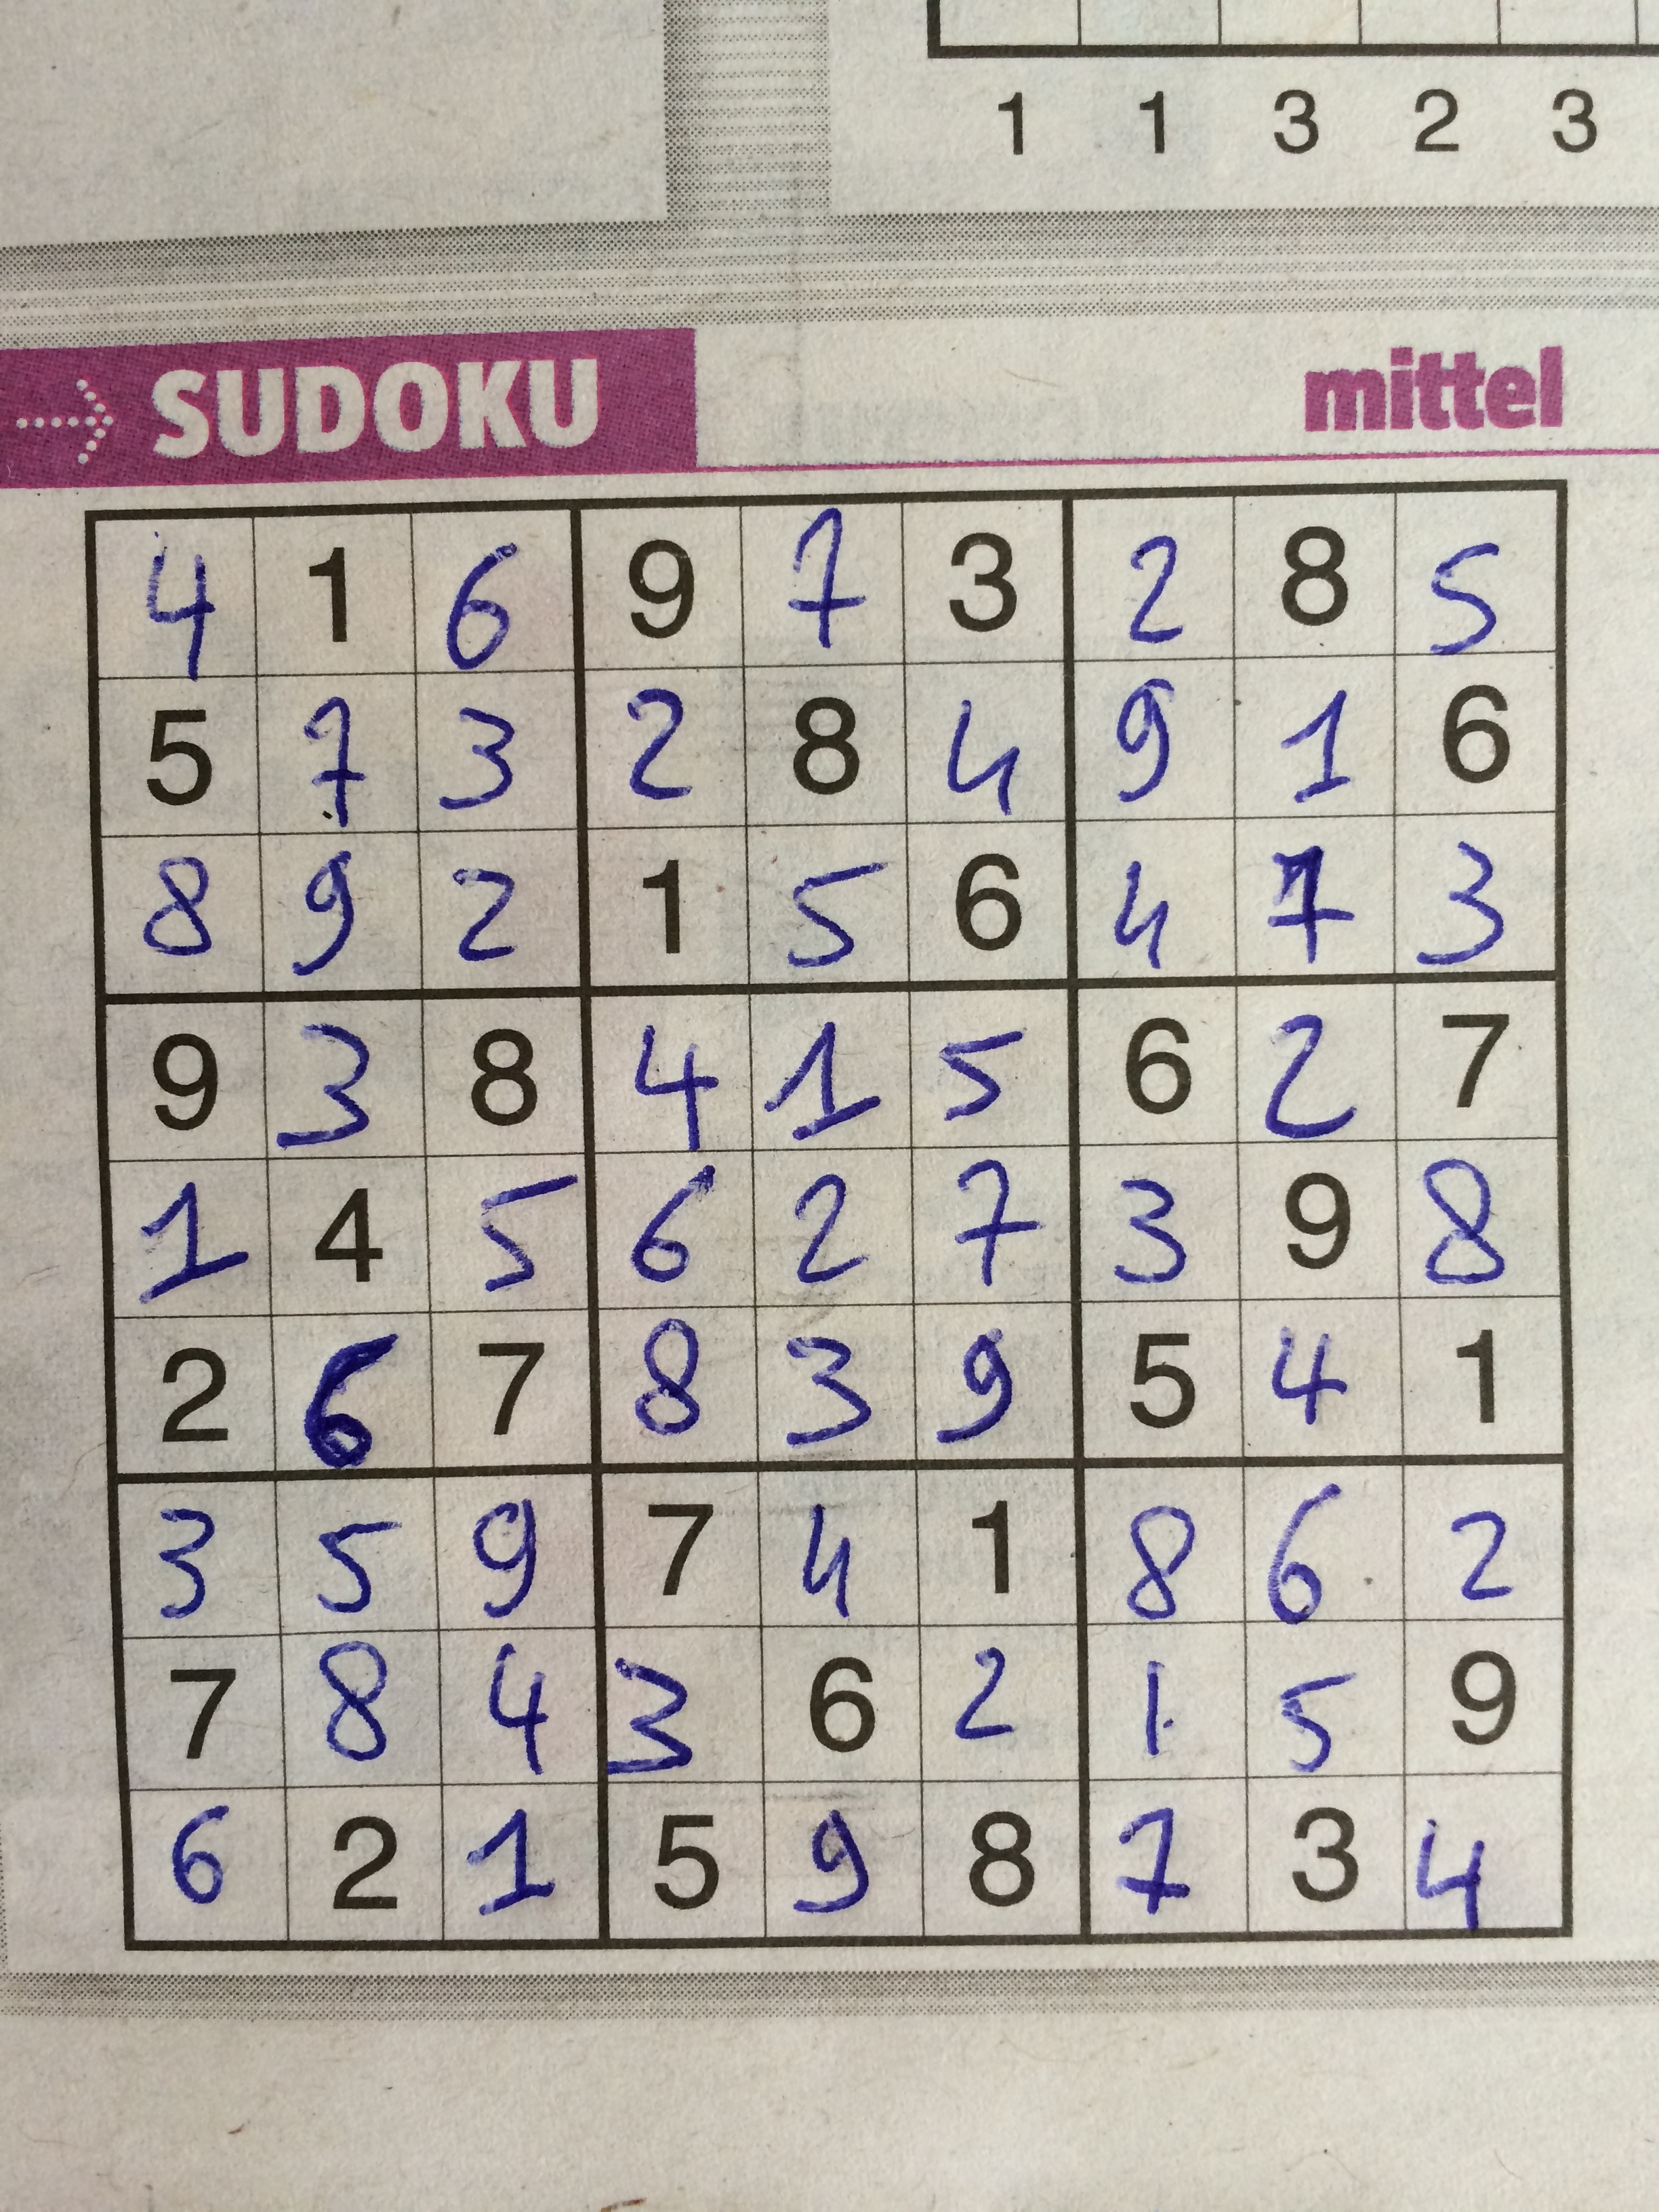 1 1 3 2 3
SUDOKU mittel
4 1 6 9 7 3 2 8 5
5 7 3 2 8 4 9 1 6
8 9 2 1 5 6 4 7 3
9 3 8 4 1 5 6 2 7
1 4 5 6 2 7 3 9 8
2 6 7 8 3 9 5 4 1
3 5 9 7 4 1 8 6 2
7 8 4 3 6 2 1 5 9
6 2 1 5 9 8 7 3 4